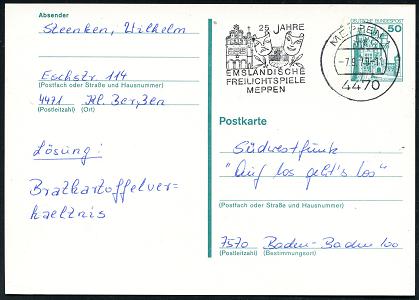 Absender
Steenken, Wilhelm
Eschstr 114
(Postfach oder Straße und Hausnummer)
4471 Kl. Berßen
(Postleitzahl) (Ort)
Lösung:
Bratkartoffelver=
haeltnis
25 JAHRE
EMSLÄNDISCHE
FREILICHTSPIELE
MEPPEN
MEPPEN
4470
DEUTSCHE BUNDESPOST
50
Postkarte
Südwestfunk
"Auf los geht's los"
(Postfach oder Straße und Hausnummer)
7570 Baden-Baden 100
(Postleitzahl) (Bestimmungsort)